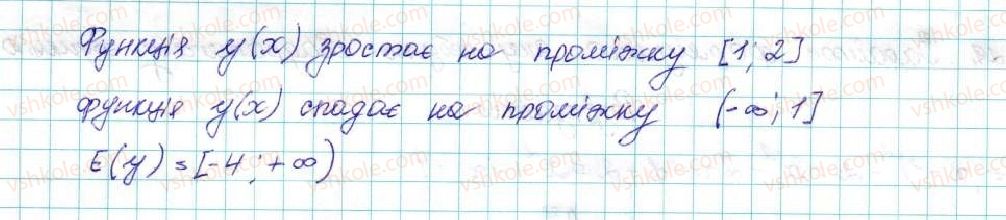 Функція y(x) зростає на проміжку [1; 2]
функція y(x) спадає на проміжку (-∞; 1]
E(y) = [-4; +∞)